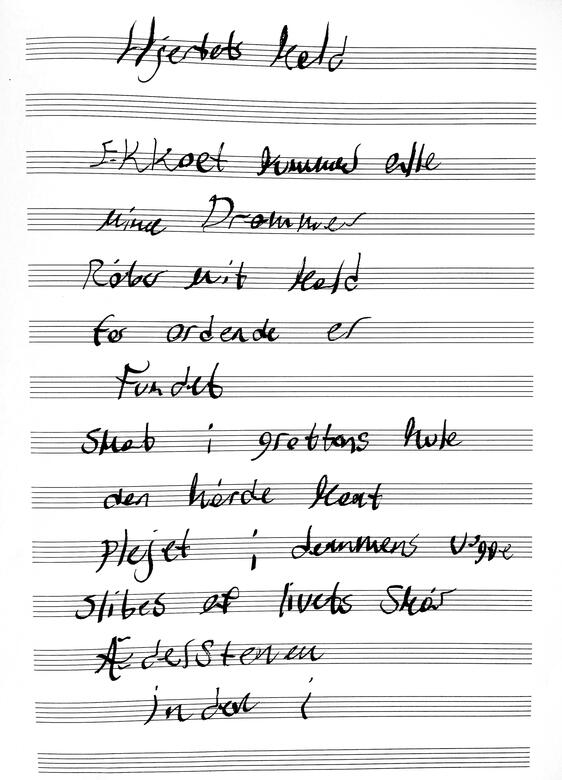 Hjertets Kald
Ekkoet kummer efte
mine Drømmer
Råber mit Kald
før ordende er
Fundet
Skab i grottens hule
den hårde Kant
plejet i dammens vugge
Slibes af livets Skår
Ædelstenen
inden i